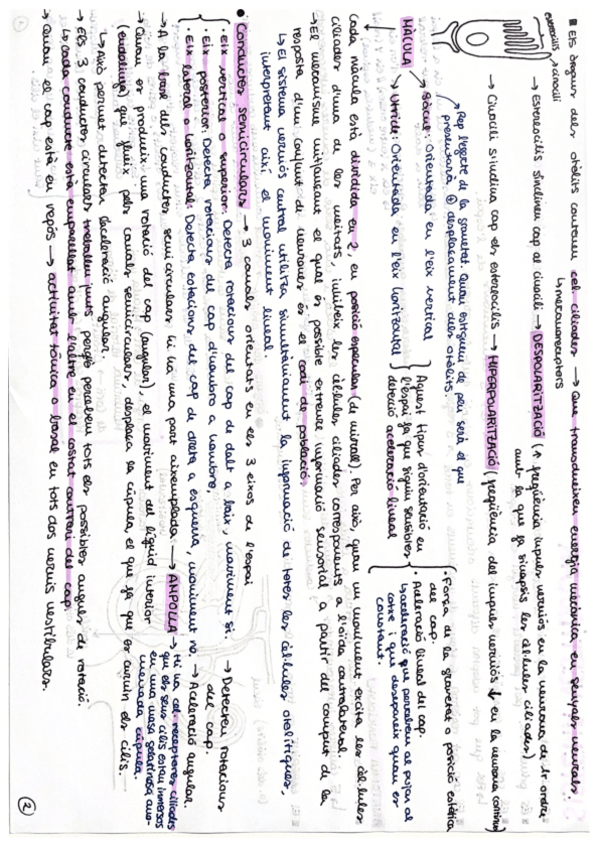 estereocilis
cinocili
Els òrgans dels otòlits contenen cèl. ciliades → Que transdueixen energia mecànica en senyals neurals.
↳ mecanoreceptors
→ Estereocilis s'inclinen cap al cinocili → DESPOLARITZACIÓ (↑ freqüència impuls nerviós en la neurona de 1r ordre
amb la que fa sinapsis les cèl·lules ciliades)
→ Cinocili s'inclina cap els estereocilis → HIPERPOLARITZACIÓ (freqüència del impuls nerviós ↓ en la neurona
→ Rep l'efecte de la gravetat quan estiguem de peu serà el que
presentarà ⊕ desplaçament dels otòlits.
MÀCULA
Sàcul: Orientada en l'eix vertical
Utricle: Orientada en l'eix horitzontal
Aquest tipus d'orientació en
l'espai fa que siguin sensibles
detecció acceleració lineal
· Força de la gravetat o posició estàtica
del cap.
· Acceleració lineal del cap.
↳ acceleració que percebem al pujar al
cotxe i que desapareix quan és
constant.
Cada màcula està dividida en 2, en posició especular (de mirall). Per això, quan un moviment excita les cèl·lules
ciliades d'una de les meitats, inhibeix les cèl·lules ciliades corresponents a l'oïda contralateral.
→ El mecanisme mitjançant el qual és possible extreure informació sensorial a partir del còmput de la
resposta d'un conjunt de neurones és el codi de població.
↳ El sistema nerviós central utilitza simultàniament la informació de totes les cèl·lules otolítiques,
interpretant així el moviment lineal.
• Conductes semicirculars → 3 canals orientats en els 3 eixos de l'espai
· Eix vertical o superior: Detecta rotacions del cap de dalt a baix, moviment sí.
· Eix posterior: Detecta rotacions del cap d'hombro a hombro,
· Eix lateral o horitzontal: Detecta rotacions del cap de dreta a esquerra, moviment no.
→ Detecten rotacions
del cap.
→ Acceleració angular.
→ A la base dels conductes semicirculars hi ha una part aixemplada: → AMPOLLA → Hi ha cèl. receptores ciliades
que els seus cilis estan immersos
en una massa gelatinosa ano-
menada cúpula.
→ Quan es produix una rotació del cap (angular), el moviment del líquid interior
(endolimfa) que flueix pels canals semicirculars, desplaça sa cúpula, el que fa que es curvin els cilis.
↳ Això permet detectar l'acceleració angular.
→ Els 3 conductes circulars treballen junts perquè percebem tots els possibles angles de rotació.
↳ Cada conducte està emparellat amb l'altre en el costat contrari del cap.
→ Quan el cap està en repós → activitat tònica o basal en tots dos nervis vestibulars.
2